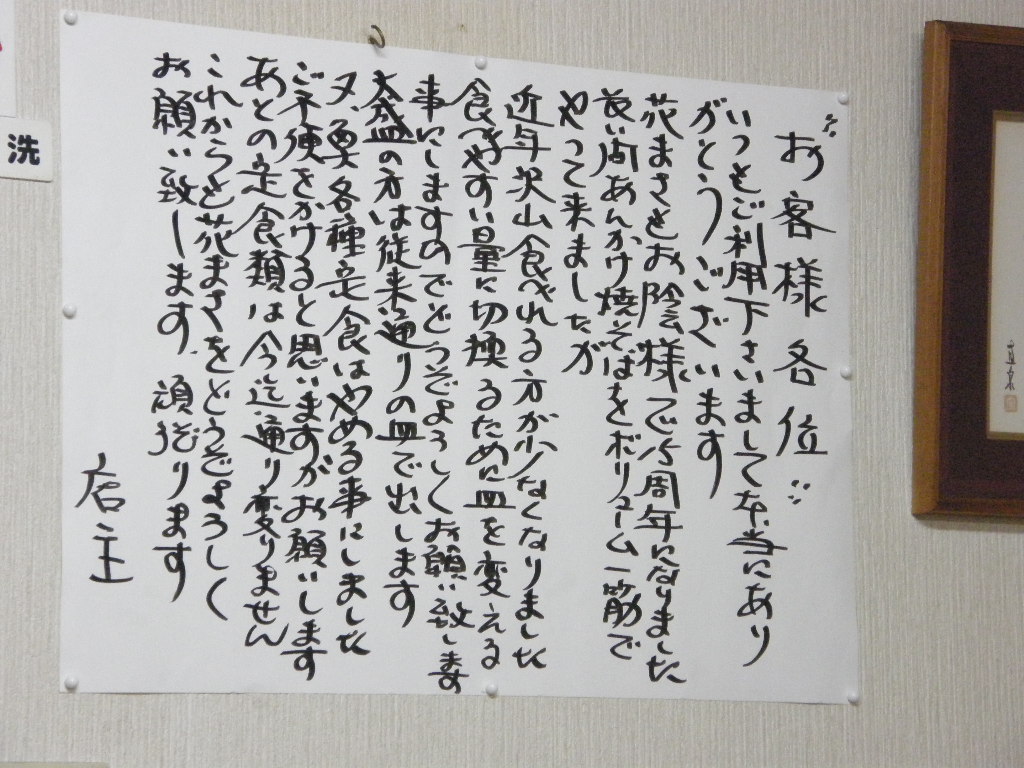 お客様各位
いつもご利用下さいまして本当にあり
がとうございます
花まさもお陰様で15周年になりました
長い間あんかけ焼そばもボリューム一筋で
やって来ましたが
近年沢山食べれる方が少なくなりました
食べやすい量に切換るために皿を変える
事にしますのでどうぞよろしくお願い致します
大盛の方は従来通りの皿で出します
又、夜各種定食はやめる事にしました
ご不便をかけると思いますがお願いします
あとの定食類は今迄通り変りません
これからも花まさをどうぞよろしく
お願い致します。頑張ります
店主
洗